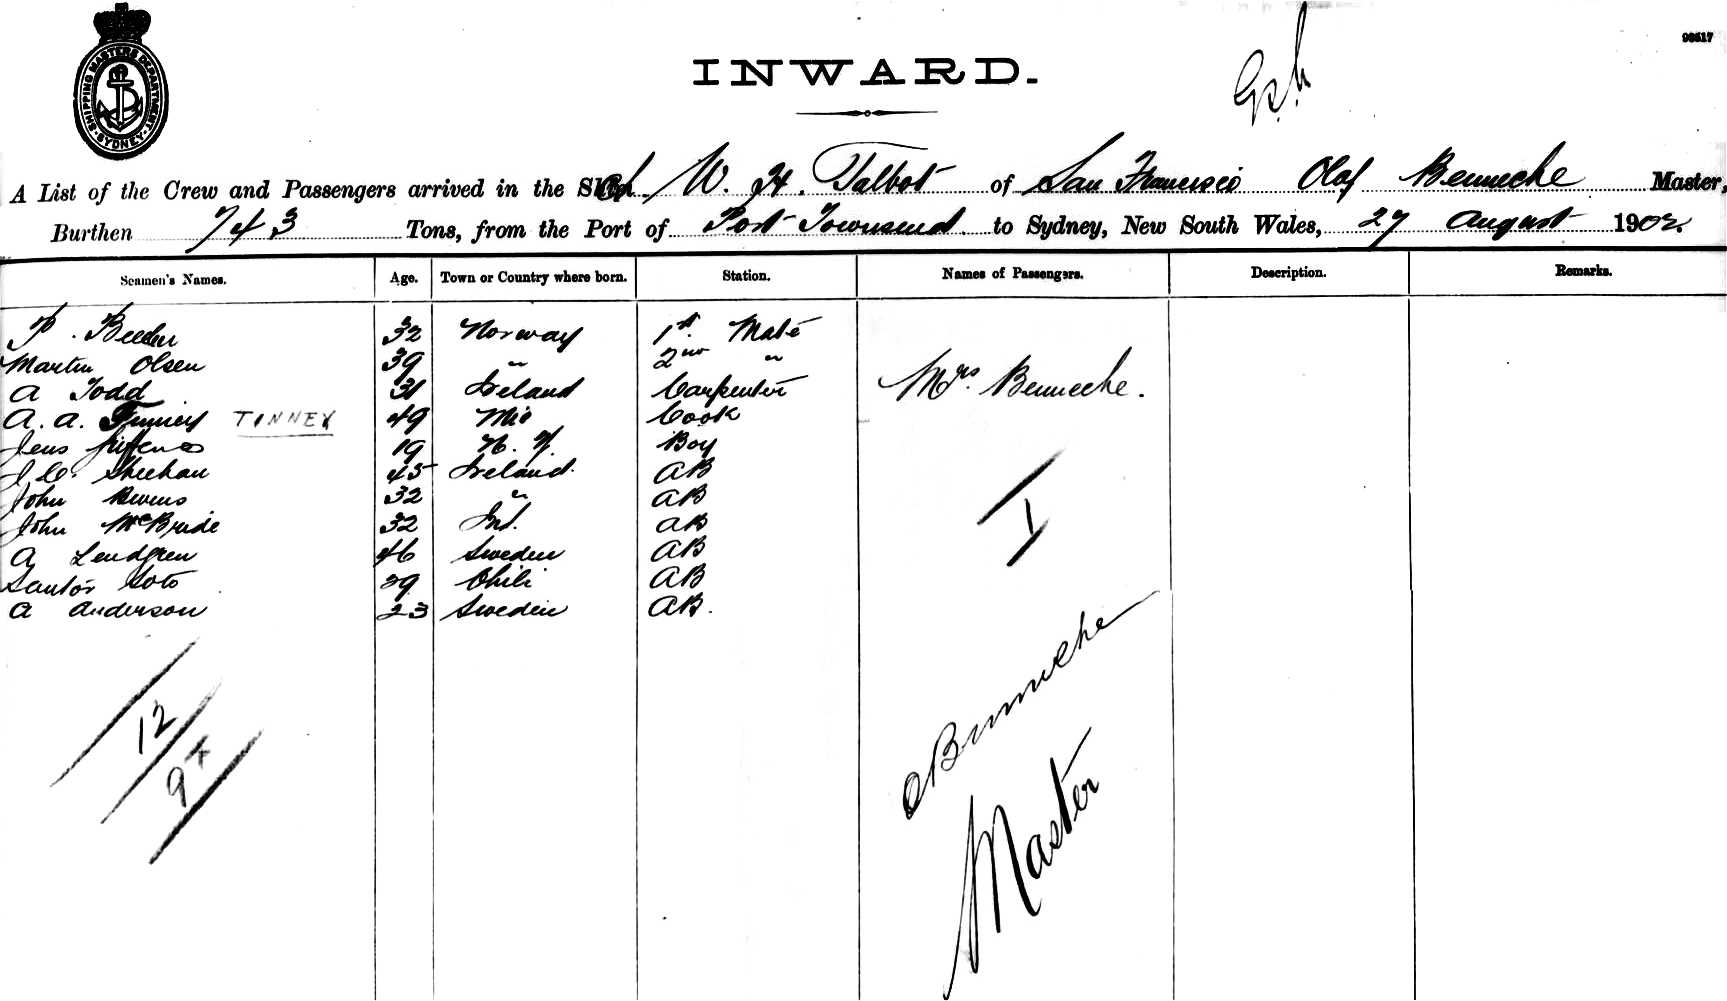 SHIPPING MASTERS DEPARTMENT · SYDNEY ·
93517
INWARD.
A List of the Crew and Passengers arrived in the Sch W. H. Talbot of San Francisco Olaf Benneche Master,
Burthen 743 Tons, from the Port of Port Townsend to Sydney, New South Wales, 27 August 1902
Seamen's Names. Age. Town or Country where born. Station. Names of Passengers. Description. Remarks.
P. Beeder 32 Norway 1st Mate
Martin Olsen 39 " 2nd "
A Todd 31 Ireland Carpenter Mrs Benneche.
A. A. Tinney TINNEY 49 Cook
Jens 19 N. Y. Boy
J. C. Sheehan 45 Ireland. AB
John Bevens 32 " AB
John McBride 32 AB
A Lendgren 46 Sweden AB
Santos Soto 29 Chili AB
A Anderson 23 Sweden AB.
1
12
9
OBenneche
Master